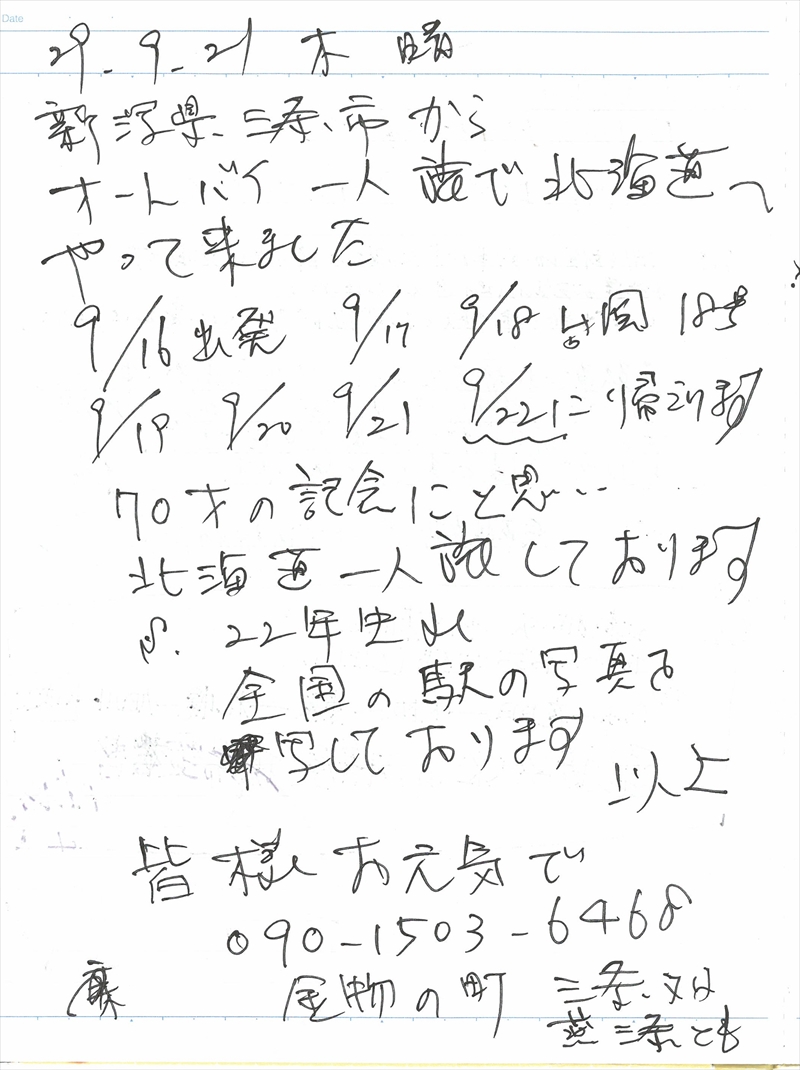 Date
29.9.21 木曜
新潟県三条市から
オートバイ一人旅で北海道へ
やって来ました
9/16出発 9/17 9/18 台風18号
9/19 9/20 9/21 9/22に帰ります
70才の記念にと思い..
北海道一人旅しております
S.22年生れ
全国の駅の写真を
写しております
以上
皆様お元気で
090-1503-6468
金物の町 三条、又は
燕三条とも